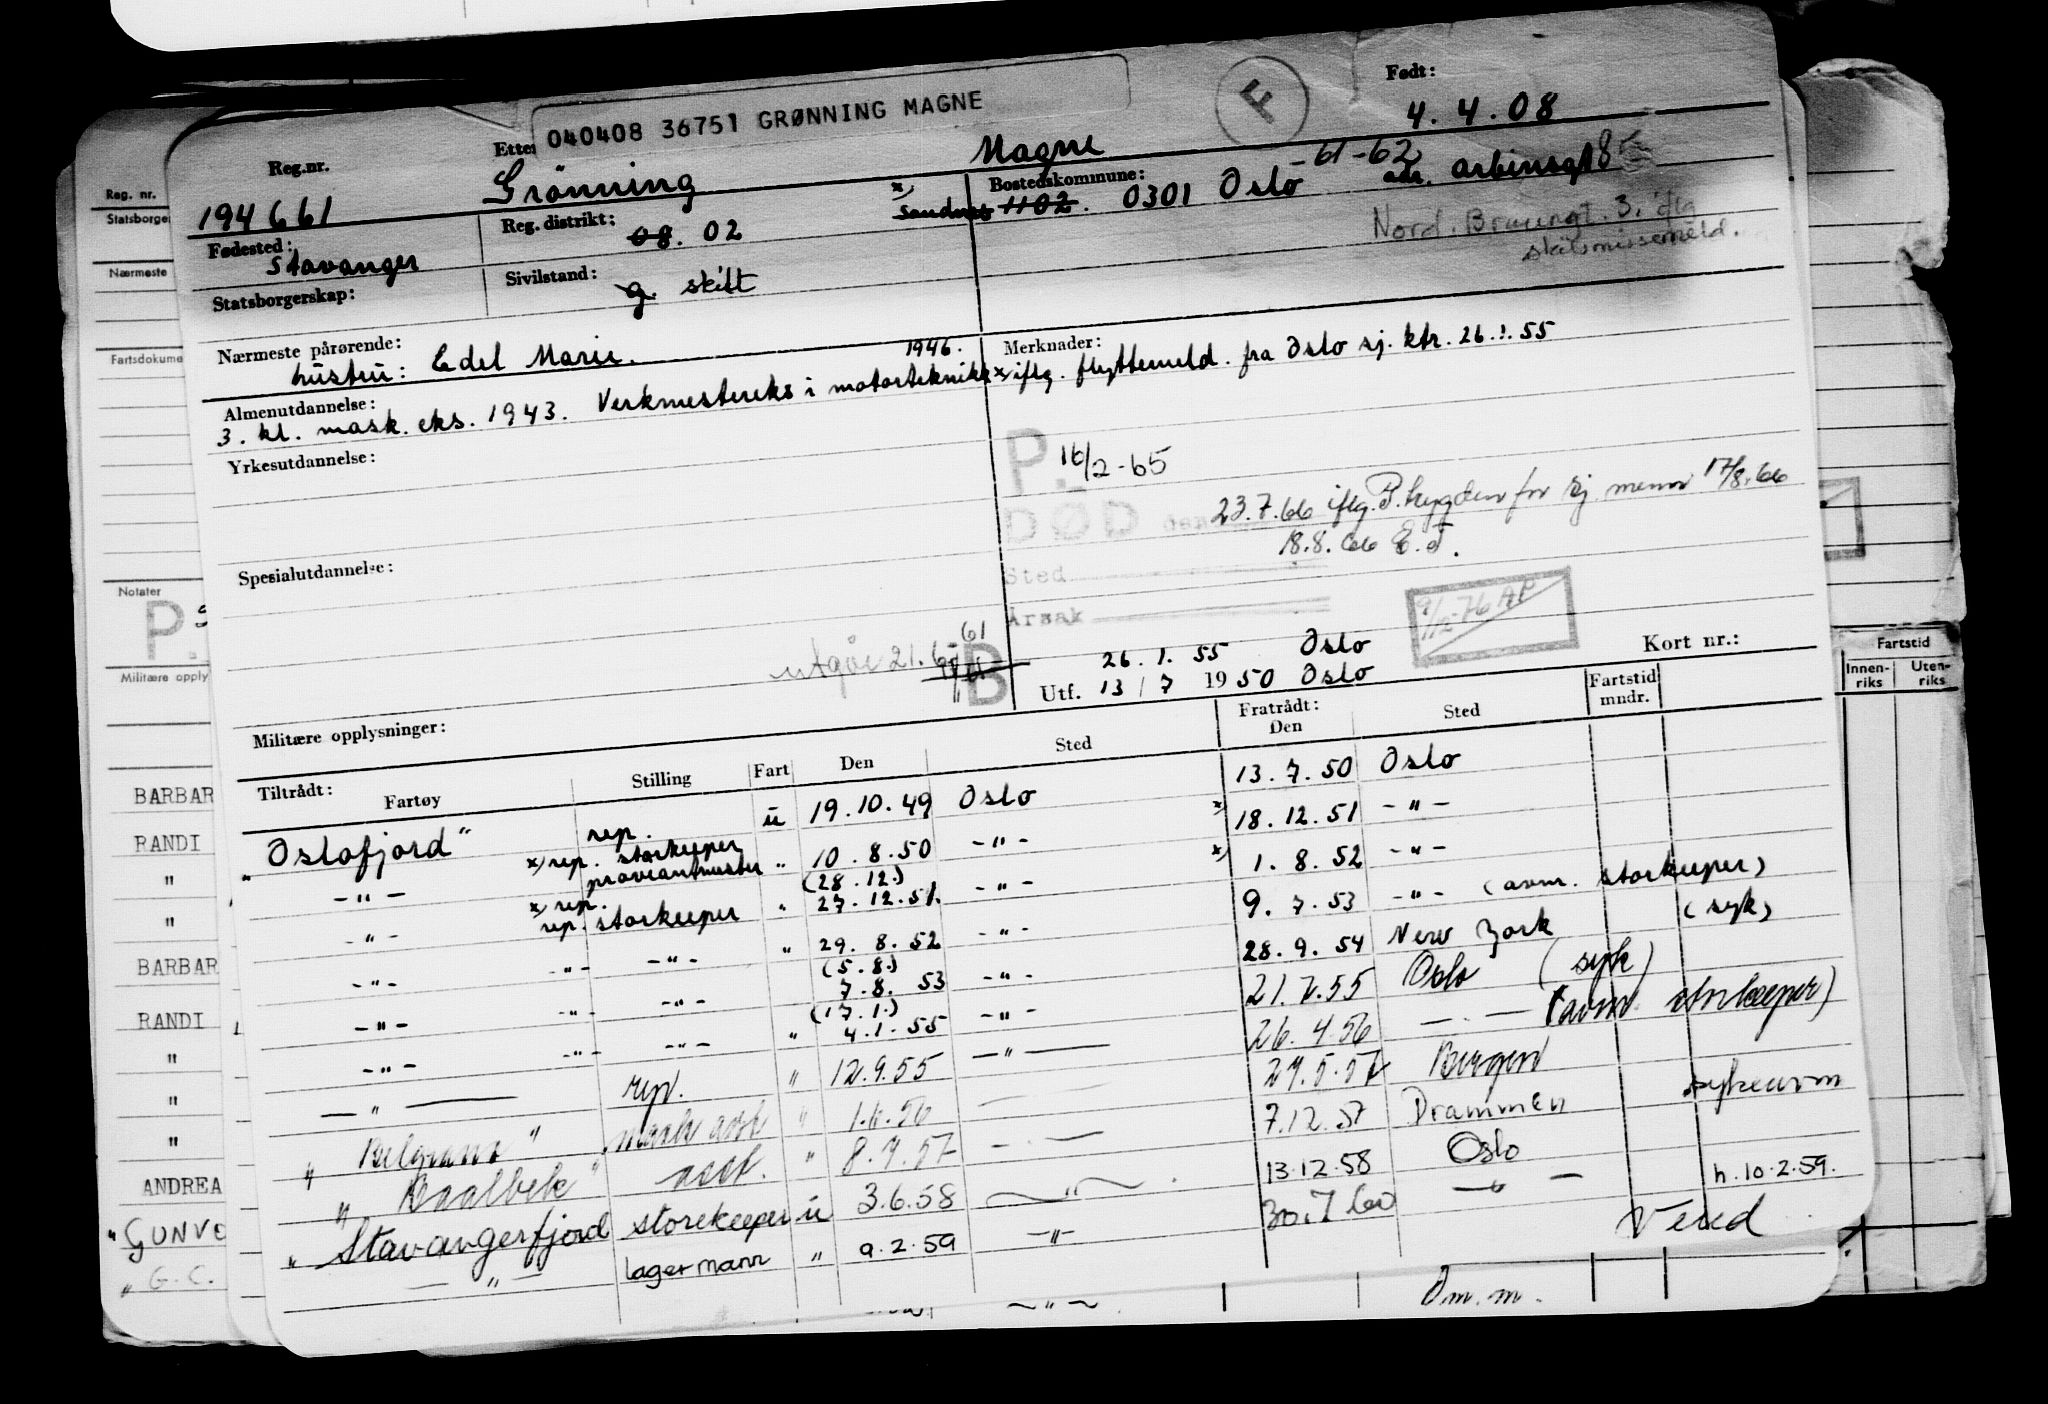 040408 36751 GRØNNING MAGNE
F
Født:
4.4.08
Reg.nr.
194661
Grönning
Magne
Fødested:
Stavanger
Reg. distrikt:
08. 02
x) Sandnes
Bostedskommune:
1102. 0301 Oslo -61-62 adr. Arbinsgt 8
Nord. Braungt. 3. iflg
skilsmissemeld.
Statsborgerskap:
Sivilstand:
g. skilt
Nærmeste pårørende:
hustru: Edel Marie.
Almenutdannelse:
3. kl. mask. eks. 1943. Verkmestereks i motorteknikk 1946.
Merknader:
x) iflg. flyttemeld. fra Oslo sj. ktr. 26.1.55
Yrkesutdannelse:
P. 16/2-65
DØD den 23.7.66 iflg. for sj. menn 17/8.66
18.8.66 E.J.
Sted
Årsak
9/12-76 AP
Spesialutdannelse:
utgår 21.6
61
B
26.1.55 Oslo
Utf. 13/7 1950 Oslo
Kort nr.:
Militære opplysninger:
Tiltrådt:
Fartøy
Stilling
Fart
Den
Sted
Fratrådt:
Den
Sted
Fartstid
mndr.
"Oslofjord" rep. u 19.10.49 Oslo 13.7.50 Oslo
-"- x) rep. storkeeper proviantmester " 10.8.50 -"- x) 18.12.51 -"-
-"- x) rep. rep. storkeeper " (28.12.) 27.12.51. -"- x) 1.8.52 -"-
-"- -"- -"- " 29.8.52 -"- 9.7.53 -"- (avm. storkeeper)
-"- -"- -"- (5.8.) 7.8.53 -"- 28.9.54 New York (syk)
-"- -"- -"- " (17.1.) 4.1.55 -"- 21.7.55 Oslo (syk)
-"- rep. " 12.9.55 -"- 26.4.56 -"- (avm storkeeper)
" " mask asst " 1.11.56 29.5.57 Bergen
" Baalbek" asst. " 8.7.57 -"- 7.12.57 Drammen sykeavm
" Stavangerfjord storekeeper u 3.6.58 -"- 13.12.58 Oslo
-"- lagermann " 9.2.59 -"- 30.7.60 -"- h. 10.2.59.
Om.m.
Reg. nr.
Statsborger
Nærmeste
Fartsdokume
Notater
P.
Militære opply
BARBAR
RANDI
"
"
BARBAR
RANDI
"
"
"
ANDREA
"GUNVO
"G.C.
Fartstid
Innen-
riks
Uten-
riks